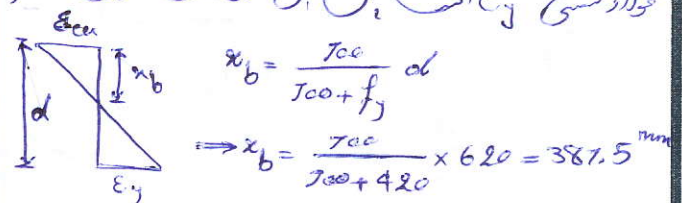 ε_cu
d
x_b
ε_y
x_b = 700 / (700 + f_y) d
⟹ x_b = 700 / (700 + 420) × 620 = 387.5 mm